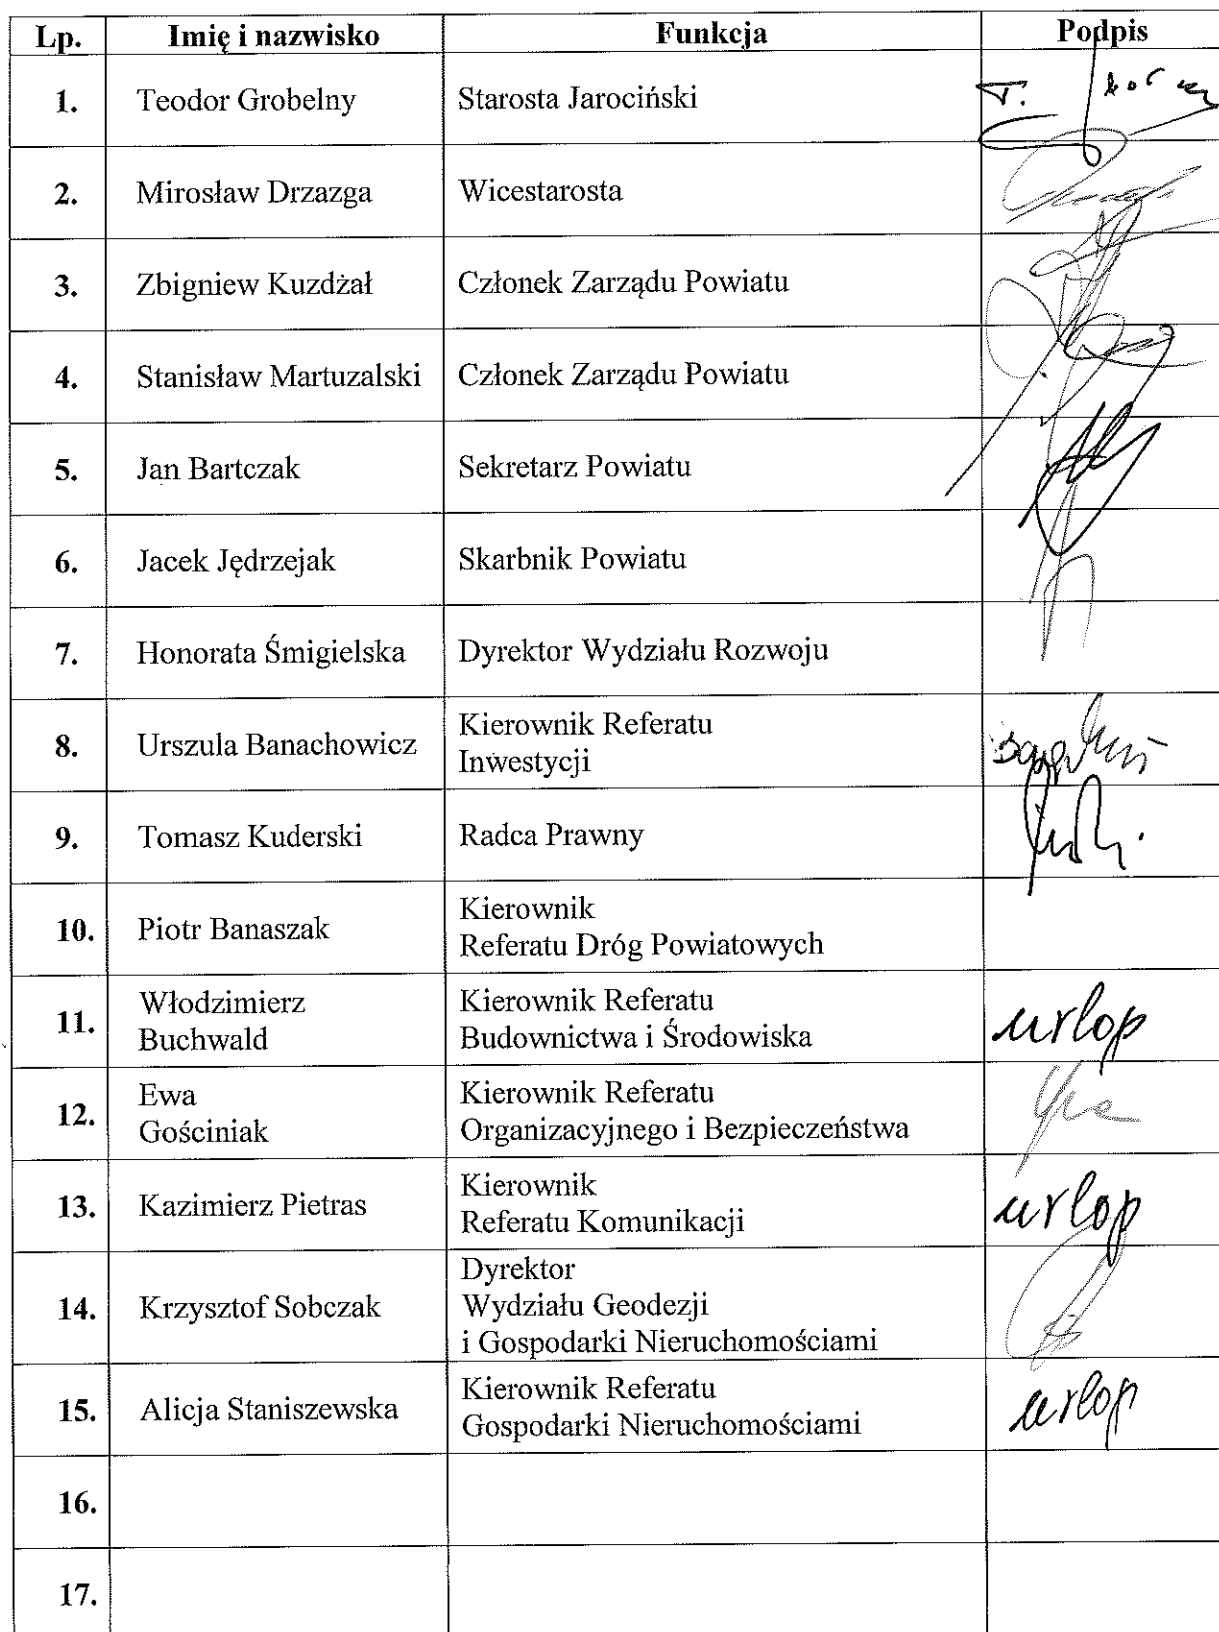 Lp. Imię i nazwisko Funkcja Podpis
1. Teodor Grobelny Starosta Jarociński T.
2. Mirosław Drzazga Wicestarosta
3. Zbigniew Kuzdżał Członek Zarządu Powiatu
4. Stanisław Martuzalski Członek Zarządu Powiatu
5. Jan Bartczak Sekretarz Powiatu
6. Jacek Jędrzejak Skarbnik Powiatu
7. Honorata Śmigielska Dyrektor Wydziału Rozwoju
8. Urszula Banachowicz Kierownik Referatu
Inwestycji
9. Tomasz Kuderski Radca Prawny
10. Piotr Banaszak Kierownik
Referatu Dróg Powiatowych
11. Włodzimierz
Buchwald Kierownik Referatu
Budownictwa i Środowiska urlop
12. Ewa
Gościniak Kierownik Referatu
Organizacyjnego i Bezpieczeństwa
13. Kazimierz Pietras Kierownik
Referatu Komunikacji urlop
14. Krzysztof Sobczak Dyrektor
Wydziału Geodezji
i Gospodarki Nieruchomościami
15. Alicja Staniszewska Kierownik Referatu
Gospodarki Nieruchomościami urlop
16.
17.